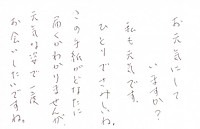 お元気にして
いますか?
私も元気です。
ひとりでさみしいね。
この手紙がどなたに
届くかわかりませんが
元気な姿で一度
お会いしたいですね。